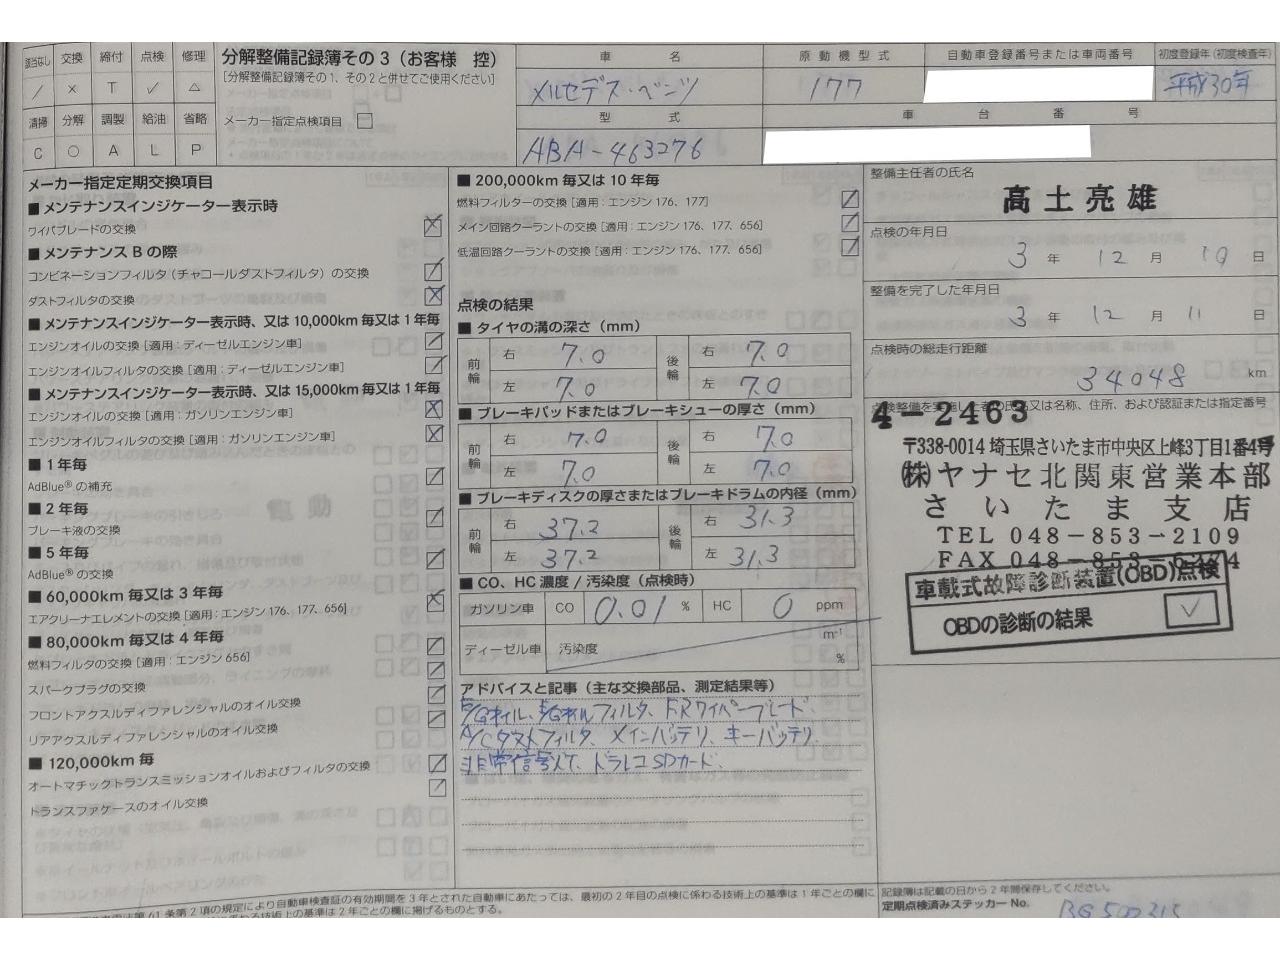 該当なし 交換 締付 点検 修理
/ × T ✓ △
清掃 分解 調製 給油 省略
C ○ A L P
分解整備記録簿その3（お客様 控）
[分解整備記録簿その1、その2と併せてご使用ください]
メーカー指定点検項目 □
車 名
メルセデス・ベンツ
原動機型式
177
自動車登録番号または車両番号
初度登録年(初度検査年)
平成30年
型 式
ABA-463276
車 台 番 号
メーカー指定定期交換項目
■メンテナンスインジケーター表示時
ワイパブレードの交換
■メンテナンス B の際
コンビネーションフィルタ（チャコールダストフィルタ）の交換
ダストフィルタの交換
■メンテナンスインジケーター表示時、又は 10,000km 毎又は 1 年毎
エンジンオイルの交換 [適用：ディーゼルエンジン車]
エンジンオイルフィルタの交換 [適用：ディーゼルエンジン車]
■メンテナンスインジケーター表示時、又は 15,000km 毎又は 1 年毎
エンジンオイルの交換 [適用：ガソリンエンジン車]
エンジンオイルフィルタの交換 [適用：ガソリンエンジン車]
■ 1 年毎
AdBlue®の補充
■ 2 年毎
ブレーキ液の交換
■ 5 年毎
AdBlue®の交換
■ 60,000km 毎又は 3 年毎
エアクリーナエレメントの交換 [適用：エンジン176、177、656]
■ 80,000km 毎又は 4 年毎
燃料フィルタの交換 [適用：エンジン 656]
スパークプラグの交換
フロントアクスルディファレンシャルのオイル交換
リアアクスルディファレンシャルのオイル交換
■ 120,000km 毎
オートマチックトランスミッションオイルおよびフィルタの交換
トランスファケースのオイル交換
■ 200,000km 毎又は 10 年毎
燃料フィルターの交換 [適用：エンジン 176、177]
メイン回路クーラントの交換 [適用：エンジン 176、177、656]
低温回路クーラントの交換 [適用：エンジン 176、177、656]
点検の結果
■ タイヤの溝の深さ（mm）
前輪 右 7.0 後輪 右 7.0
左 7.0 左 7.0
■ ブレーキパッドまたはブレーキシューの厚さ（mm）
前輪 右 7.0 後輪 右 7.0
左 7.0 左 7.0
■ ブレーキディスクの厚さまたはブレーキドラムの内径（mm）
前輪 右 37.2 後輪 右 31.3
左 37.2 左 31.3
■ CO、HC 濃度 / 汚染度（点検時）
ガソリン車 CO 0.01 % HC 0 ppm
ディーゼル車 汚染度 m⁻¹
%
アドバイスと記事（主な交換部品、測定結果等）
E/Gオイル、E/Gオイルフィルタ、F.Rワイパーブレード、
A/Cダストフィルタ、メインバッテリ、キーバッテリ、
非常信号灯、ドラレコSDカード、
整備主任者の氏名
高土亮雄
点検の年月日
3 年 12 月 10 日
整備を完了した年月日
3 年 12 月 11 日
点検時の総走行距離
34048 km
点検整備を実施した者の氏名又は名称、住所、および認証または指定番号
4-2463
〒338-0014 埼玉県さいたま市中央区上峰3丁目1番4号
㈱ヤナセ北関東営業本部
さいたま支店
TEL 048-853-2109
FAX 048-853-
車載式故障診断装置(OBD)点検
OBDの診断の結果 ✓
第 61 条第 2 項の規定により自動車検査証の有効期間を 3 年とされた自動車にあたっては、最初の 2 年目の点検に係わる技術上の基準は 1 年ごとの欄に
わる技術上の基準は 2 年ごとの欄に掲げるものとする。
記録簿は記載の日から 2 年間保存してください。
定期点検済みステッカー No.